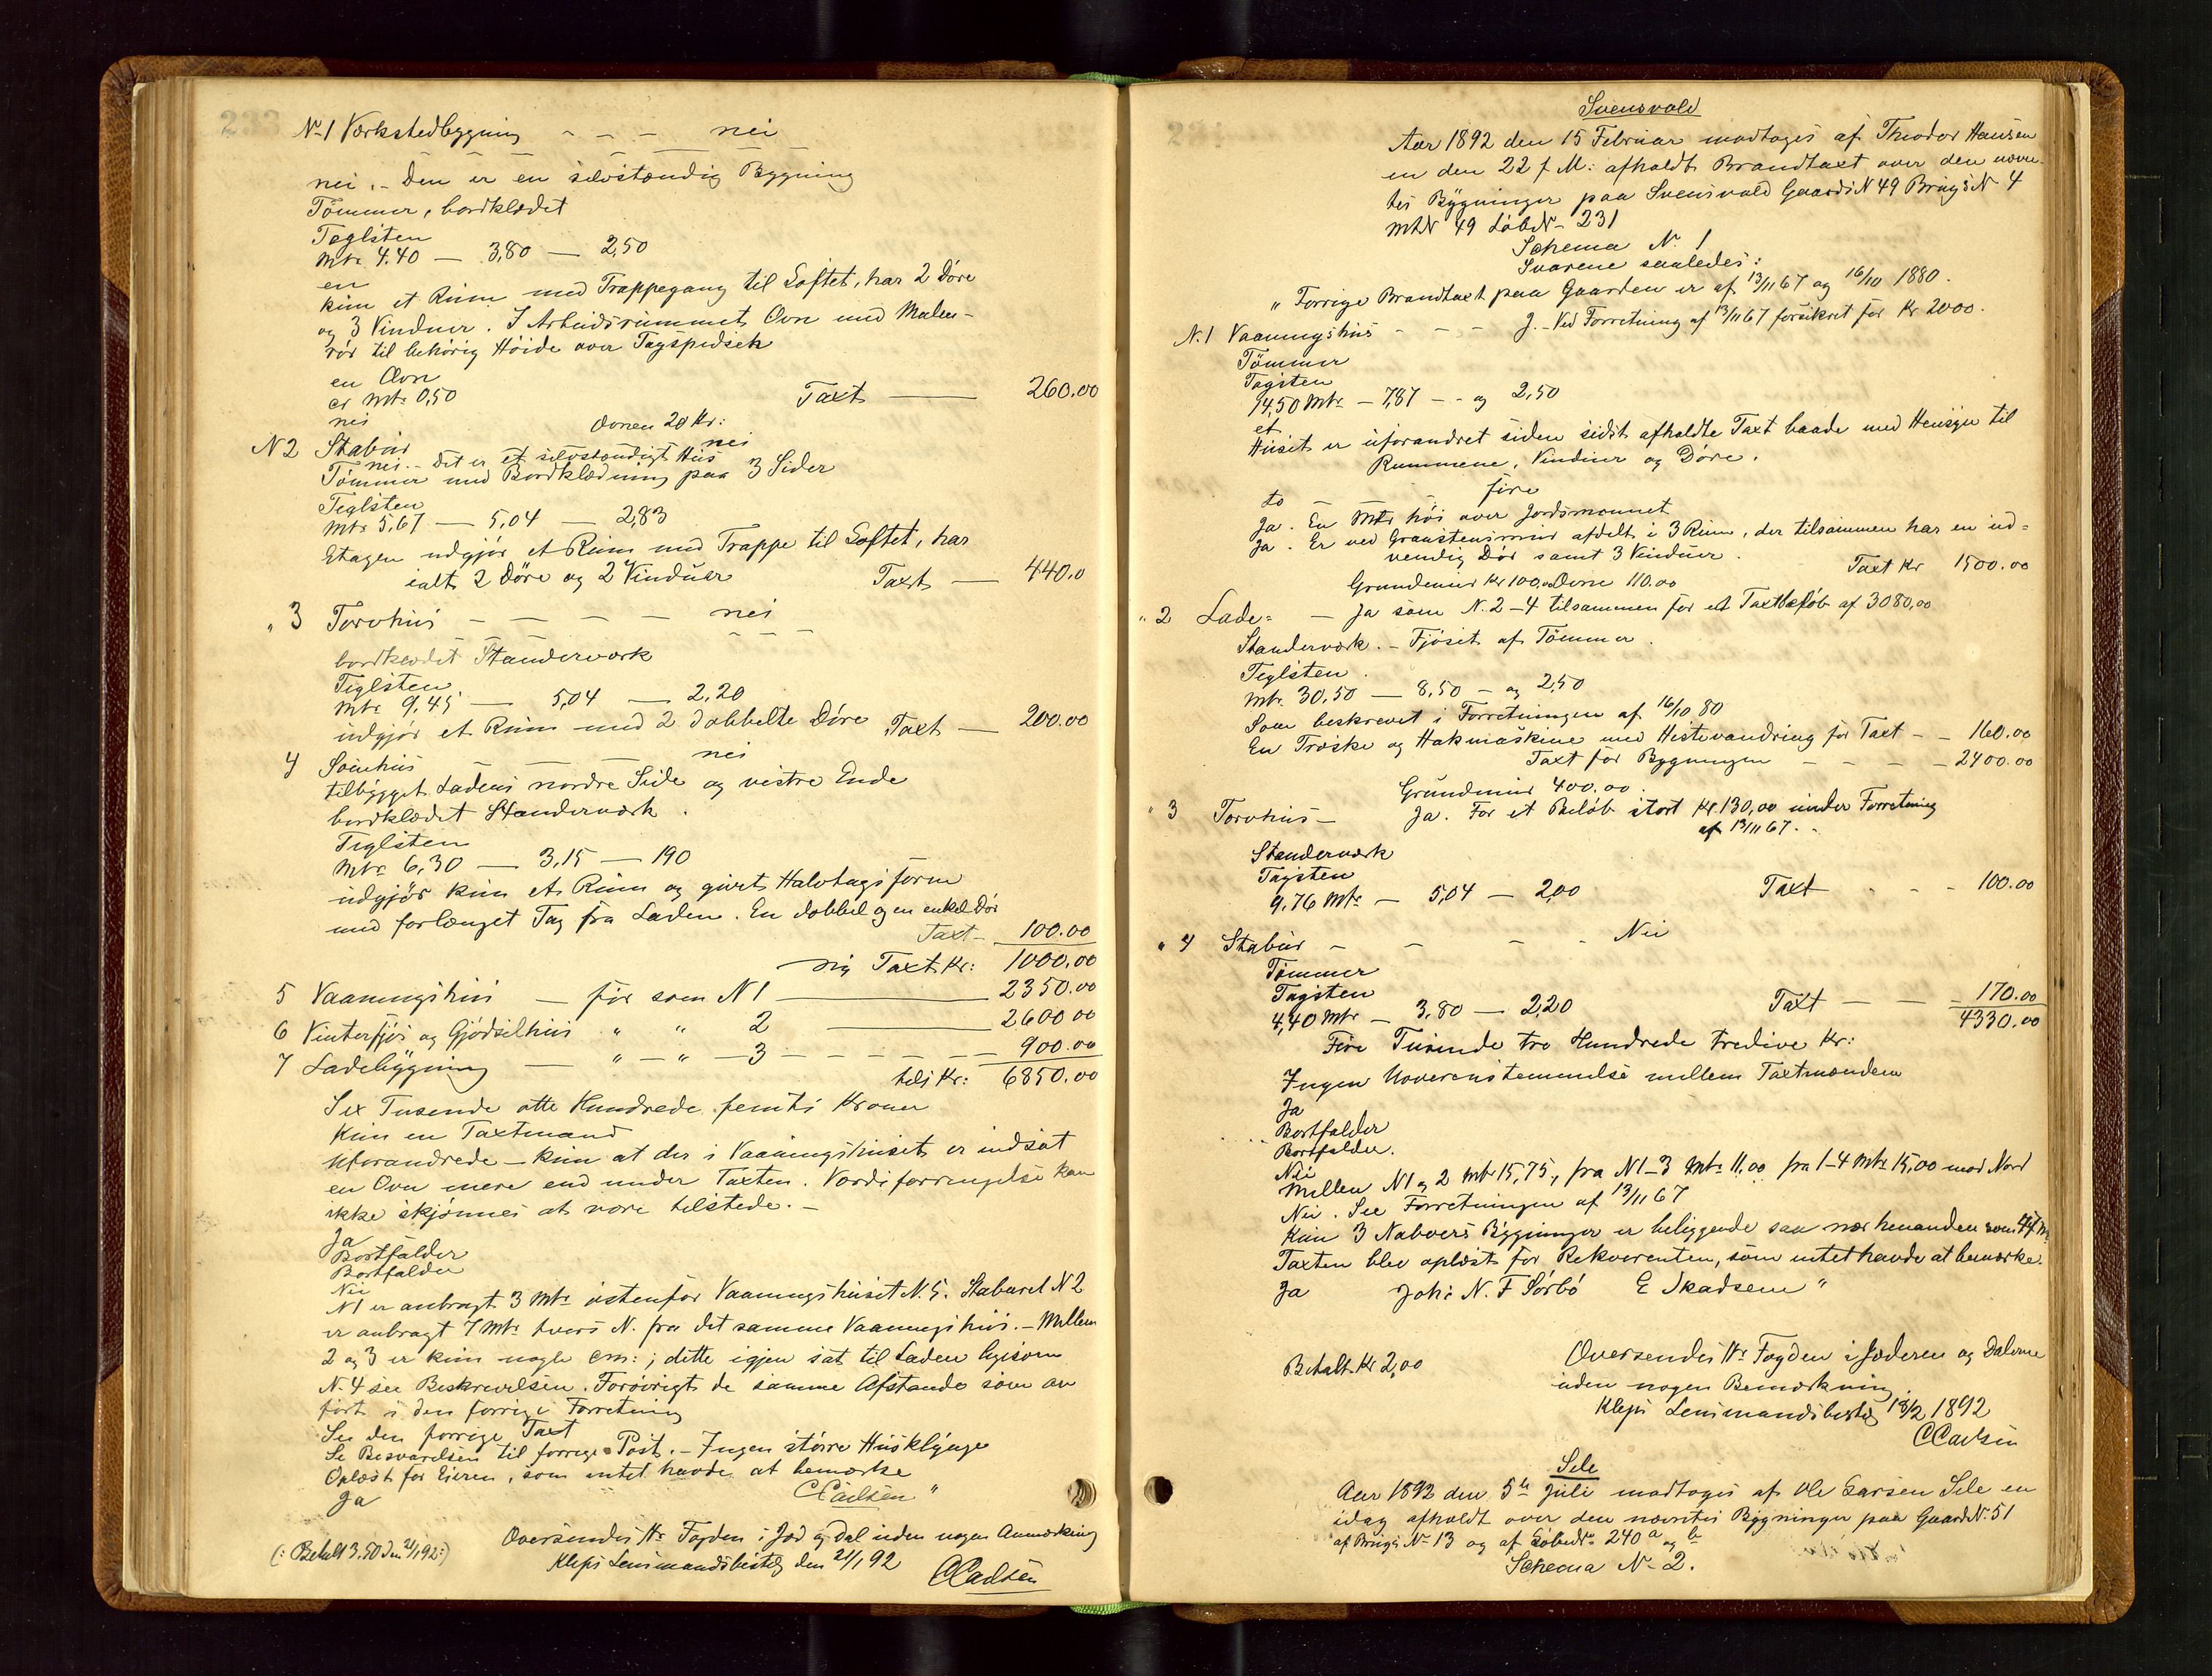 233
N-1 Værkstedbygning - - - nei
nei. - Den er en selvstændig Bygning
Tömmer, bordklædet
Teglsten
Mtr 4.40 — 3,80 — 2,50
en
kun et Rum med Trappegang til Loftet, har 2 Döre
og 3 Vinduer. I Arbeidsrummet Ovn med Malm-
rör til behörig Höide over Tagspidsen
en Ovn
er Mtr 0,50 Taxt — 260.00
nei Ovnen 20 Kr:
N 2 Stabur nei
nei. - Det er et selvstændigt Hus
Tömmer med Bordklædning paa 3 Sider
Teglsten
Mtr 5,67 — 5,04 — 2,83
Etagen udgjör et Rum med Trappe til Loftet, har
ialt 2 Döre og 2 Vinduer Taxt — 440.0
" 3 Torvhus - - - - nei
bordklædet Standerværk
Teglsten
Mtr 9,45 — 5,04 — 2,20
udgjör et Rum med 2 dobbelte Döre Taxt — 200.00
4 Svinhus - - - nei
tilbygget Ladens nordre Side og vestre Ende
bordklædet Standerværk.
Teglsten
Mtr 6,30 — 3,15 — 190
udgjör kun et Rum og givet Halvtagsform
med forlænget Tag fra Laden. En dobbel og en enkel Dör
Taxt - 100.00
ny Taxt Kr: 1000.00
5 Vaaningshus — för som N 1 — 2350.00
6 Vinterfjös og Gjödselhus " " 2 — 2600 00
7 Ladebygning — " — " — 3 - - - - - 900.00
tils Kr: 6850.00
Sex Tusende otte Hundrede femti Kroner
Kun en Taxtmand
Uforandrede - kun at der i Vaaningshuset er indsat
en Ovn mere end under Taxten. Værdiforringelse kan
ikke skjönnes at være tilstede. -
Ja
Bortfalder
Bortfalder
Nei
N1 er anbragt 3 Mtr östenfor Vaaningshuset N. 5. Staburet N 2
er anbragt 7 Mtr tvers N. fra det samme Vaaningshus. - Mellem
2 og 3 er kun nogle cm:; dette igjen sat til Laden ligesom
N. 4 see Beskrivelsen. Forövrigt de samme Afstande som an
fört i den forrige Forretning
See den forrige Taxt
Se Besvarelsen til forrige Post. - Ingen större Husklynge
Oplæst for Eieren, som intet havde at bemærke
Ja CCarlsen "
Oversendes Hr Fogden i Jæd og Dal uden nogen Anmærkning
(: Betalt 3.50 den 21/1 92:) Kleps Lensmandsbestlg den 21/1 92
CCarlsen
Svensvold
Aar 1892 den 15 Februar modtoges af Theodor Hansen
en den 22 f M: afholdt Brandtaxt over den nævn-
tes Bygninger paa Svensvold Gaards N 49 Brugs N 4
Mt N 49 Löbe N- 231
Schema N. 1
Svarene saaledes:
" Forrige Brandtaxt paa Gaarden er af 13/11 67 og 16/10 1880.
N. 1 Vaaningshus - - - J. - Ved Forretning af 13/11 67 forsikret for Kr 2000.
Tömmer
Tagsten
14,50 Mtr — 7,87 - - og 2,50
et
Huset er uforandret siden sidst afholdte Taxt baade med Hensyn til
Rummene, Vinduer og Döre.
to - fire
Ja. En Mtr höi over Jordsmonnet
Ja. Er ved Graastensmur afdelt i 3 Rum, der tilsammen har en ud=
vendig Dör samt 3 Vinduer. Taxt Kr 1500.00
Grundmur Kr 100, Ovne 110.00
" 2 Lade= - Ja som N. 2 - 4 tilsammen for et Taxtbelöb af 3080,00
Standerværk. - Fjöset af Tömmer.
Teglsten.
Mtr. 30,50 — 8,50 - og 2,50
Som beskrevet i Forretningen af 16/10 80
En Tröske og Hakmaskine med Hestevandring for Taxt - - 160.00
Taxt for Bygningen - - - - 2400.00
Grundmur 400.00.
" 3 Torvhus - Ja. For et Belöb stort Kr. 130,00 under Forretning
af 13/11 67.
Standerværk
Tagsten
9,76 Mtr — 5,04 — 2,00 Taxt - - - 100.00
" 4 Stabur - - - - Nei
Tömmer
Tagsten
4,40 Mtr — 3,80 — 2,20 Taxt — — - 170.00
4330.00
Fire Tusende tre Hundrede tredive Kr:
Ingen Uoverenstemmelse mellem Taxtmændene
Ja
Bortfalder
Bortfalder.
Nei
Mellem N 1 og 2 Mtr 15,75, fra N 1-3 Mtr 11.00 fra 1-4 Mtr 15,00 mod Nord
Nei. See Forretningen af 13/11 67
Kun 3 Naboers Bygninger er beliggende saa nær hinanden som 44 M
Taxten blev oplæst for Rekvirenten, som intet havde at bemærke.
Ja Joh: N. F Sörbö E Skadsem "
Betalt Kr 2,00 Oversendes Hr Fogden i Jæderen og Dalerne
uden nogen Bemærkning.
Kleps Lensmandsbestlg 18/2 1892
CCarlsen
Sele
Aar 1892 den 5te Juli modtoges af Ole Larsen Sele en
idag afholdt over den nævntes Bygninger paa Gaard N. 51
af Brugs N- 13 og af Löbe N. 240 a og b
Schema N- 2.